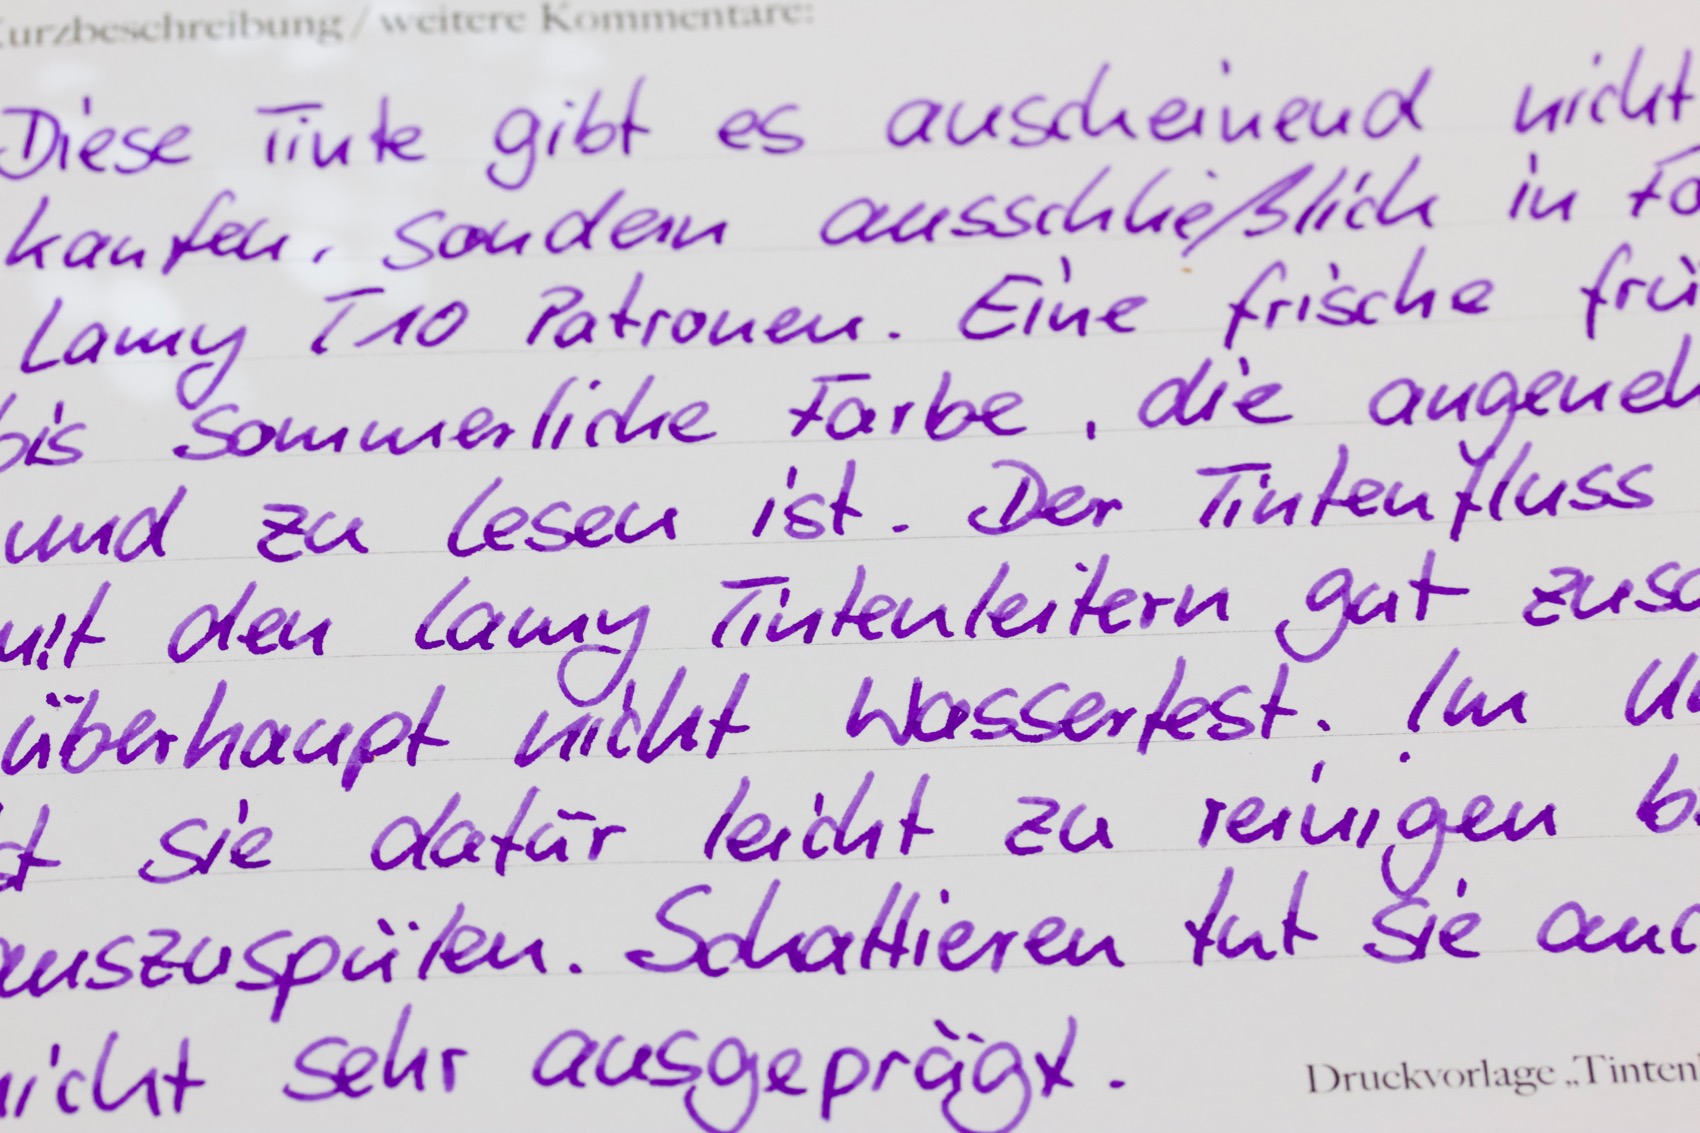 Kurzbeschreibung / weitere Kommentare:
Diese Tinte gibt es anscheinend nicht
kaufen, sondern ausschließlich in
Lamy T10 Patronen. Eine frische
bis sommerliche Farbe, die
und zu lesen ist. Der Tintenfluss
mit den Lamy Tintenleitern gut
überhaupt nicht Wasserfest. Im
sie dafür leicht zu reinigen
auszuspülen. Schattieren tut sie
nicht sehr ausgeprägt.
Druckvorlage „Tinten